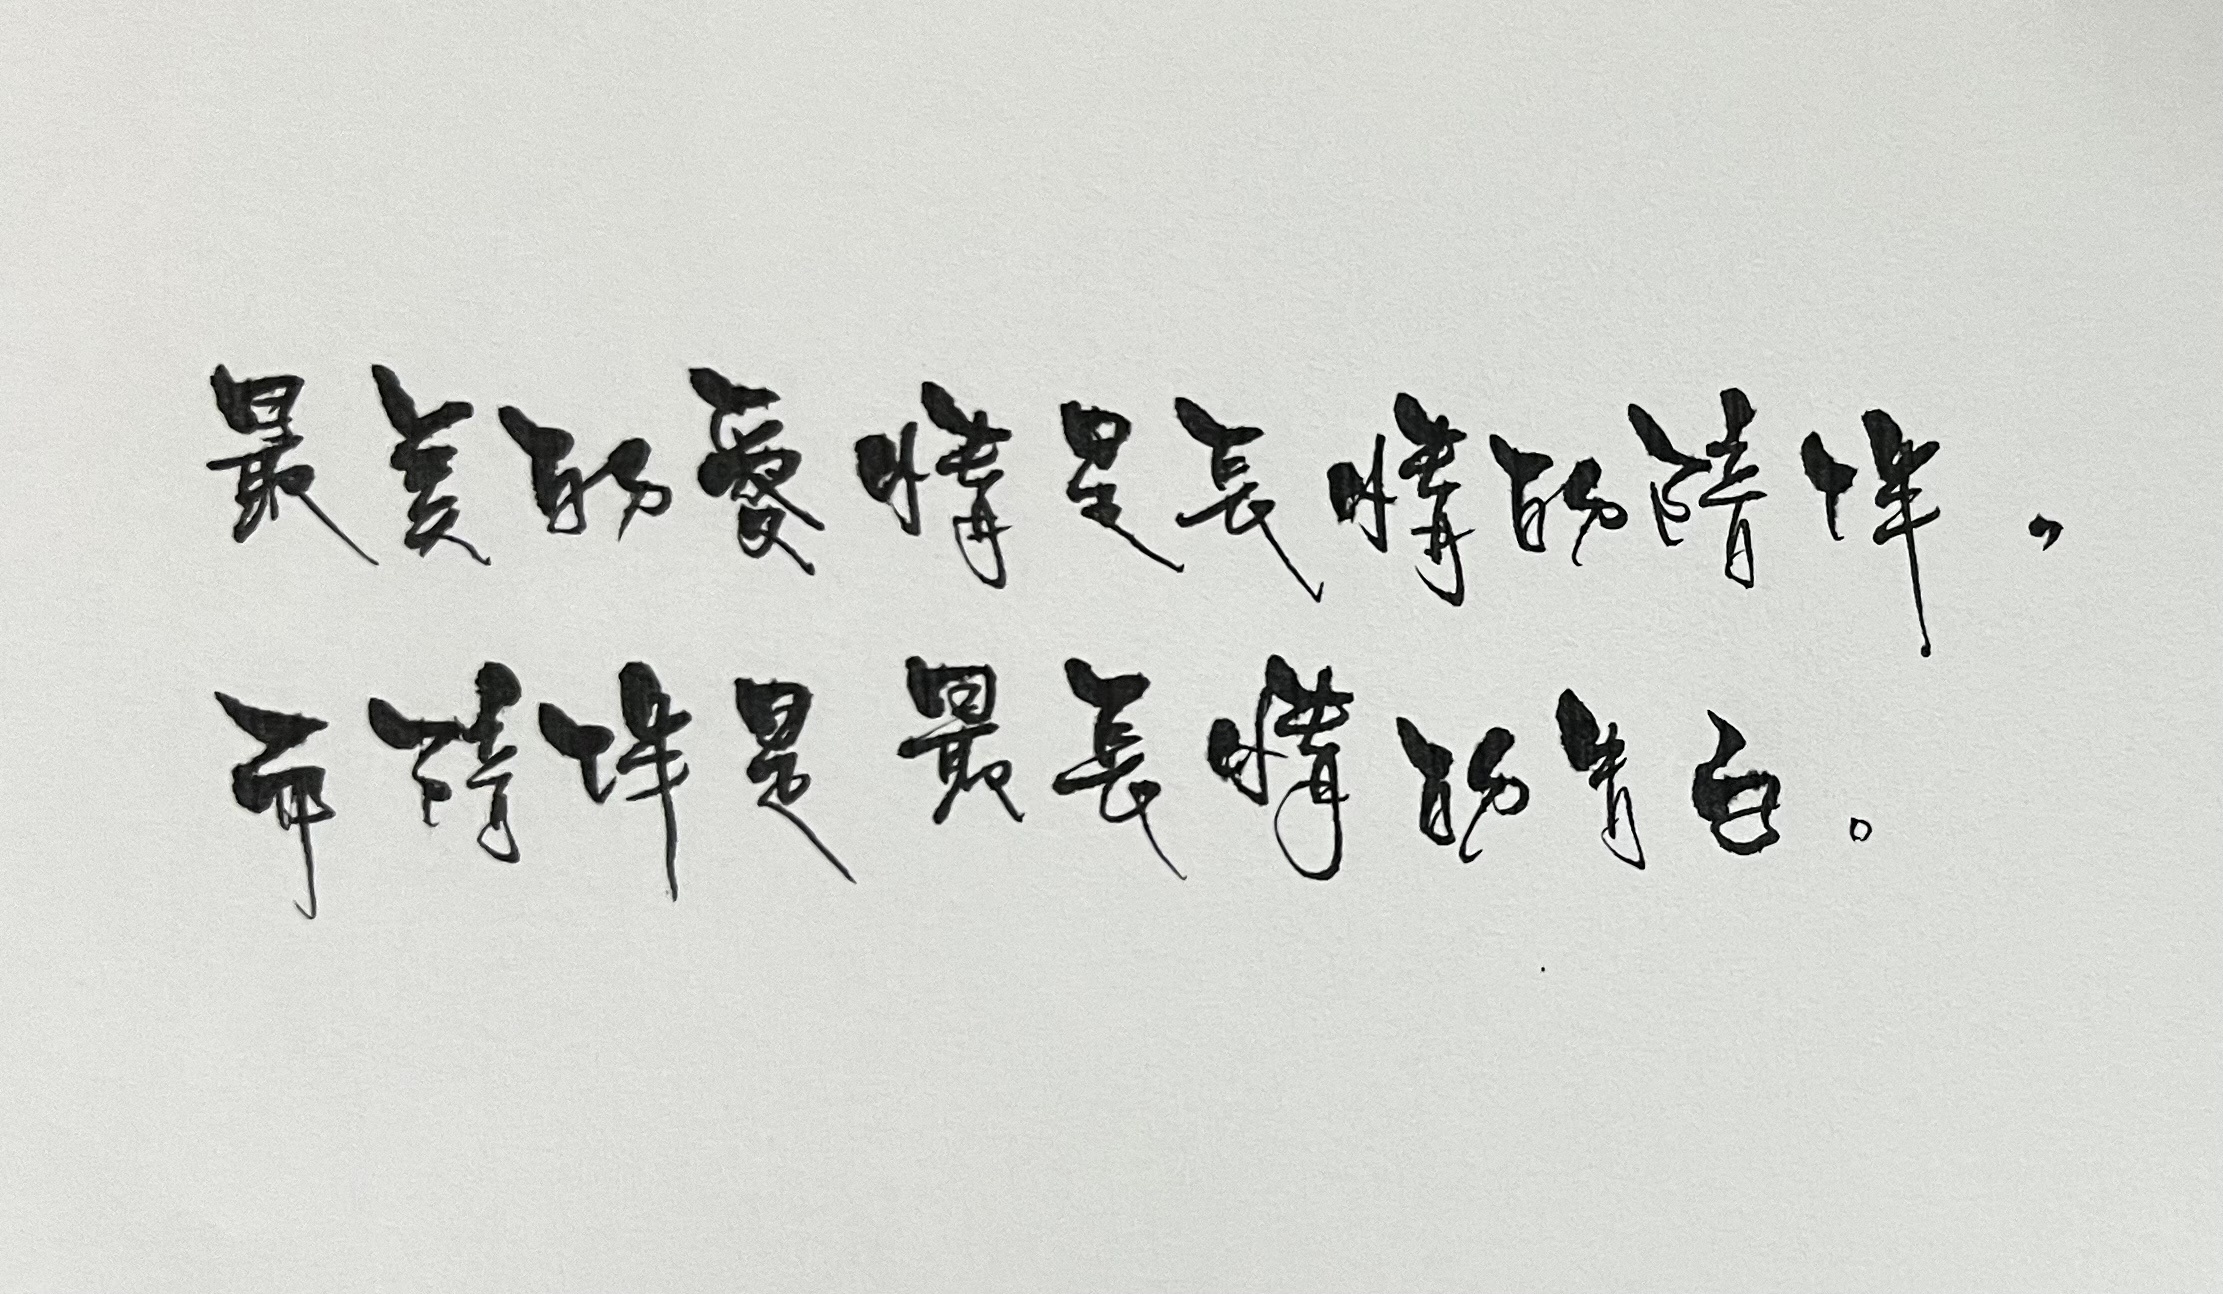 最美的愛情是長情的陪伴，
而陪伴是最長情的告白。